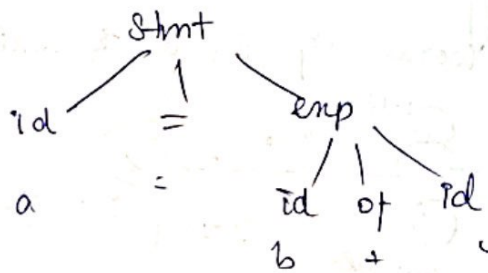 stmt
id = exp
a = id op id
b +